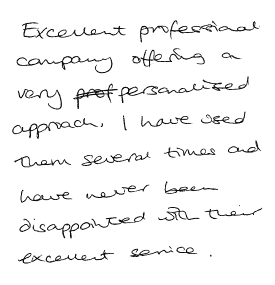 Excellent professional
company offering a
very ~~prof~~ personalised
approach. I have used
them several times and
have never been
disappointed with their
excellent service.